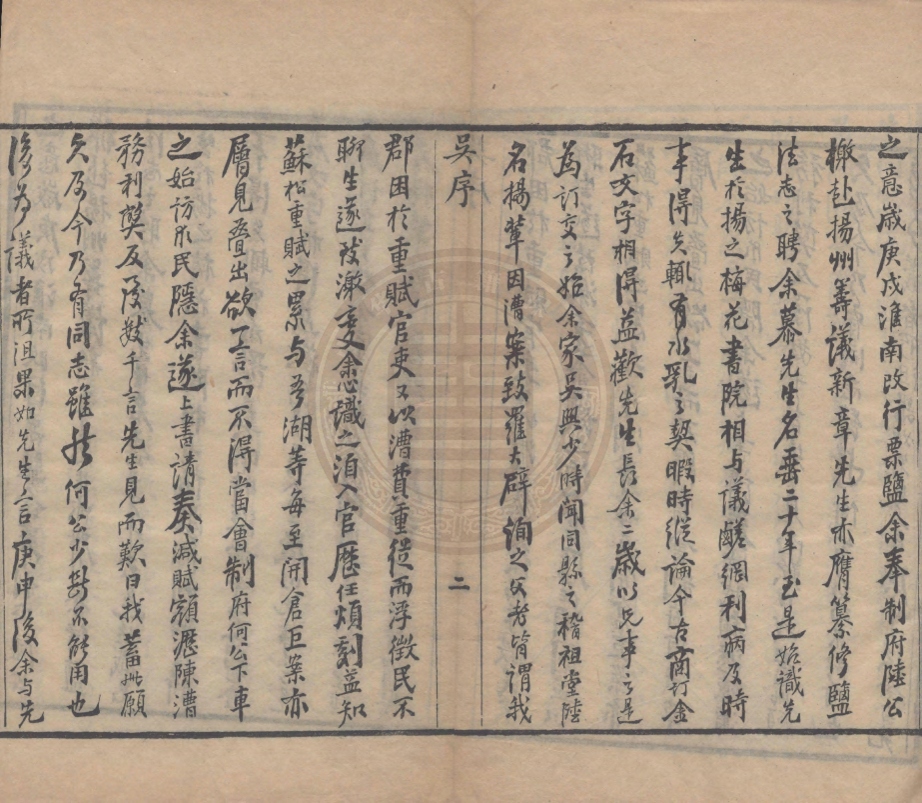 之意歲庚戌淮南改行票鹽余奉制府陸公
檄赴揚州籌議新章先生亦膺纂修鹽
法志之聘余慕先生名垂二十年至是始識先
生於揚之梅花書院相与議鹺綱利病及時
事得失輒有水乳之契暇時縱論今古商訂金
石文字相得益歡先生長余二歲以兄事之是
為訂交之始余家吳興少時聞同縣之稽祖堂陸
名揚輩因漕案致罹大辟詢之父老皆謂我
吳序
二
郡困於重賦官吏又以漕費重從而浮徵民不
聊生遂致激变余忿識之洎入官歷任煩劇益知
蘇松重賦之累与吾湖等每至開倉巨案亦
層見疊出欲一言而不得當會制府何公下車
之始訪求民隱余遂上書請奏減賦額瀝陳漕
務利獘反覆數千言先生見而歎曰我蓄此願
久及今乃有同志雖然何公少斷不能用也
後為議者所沮果如先生言庚申後余与先